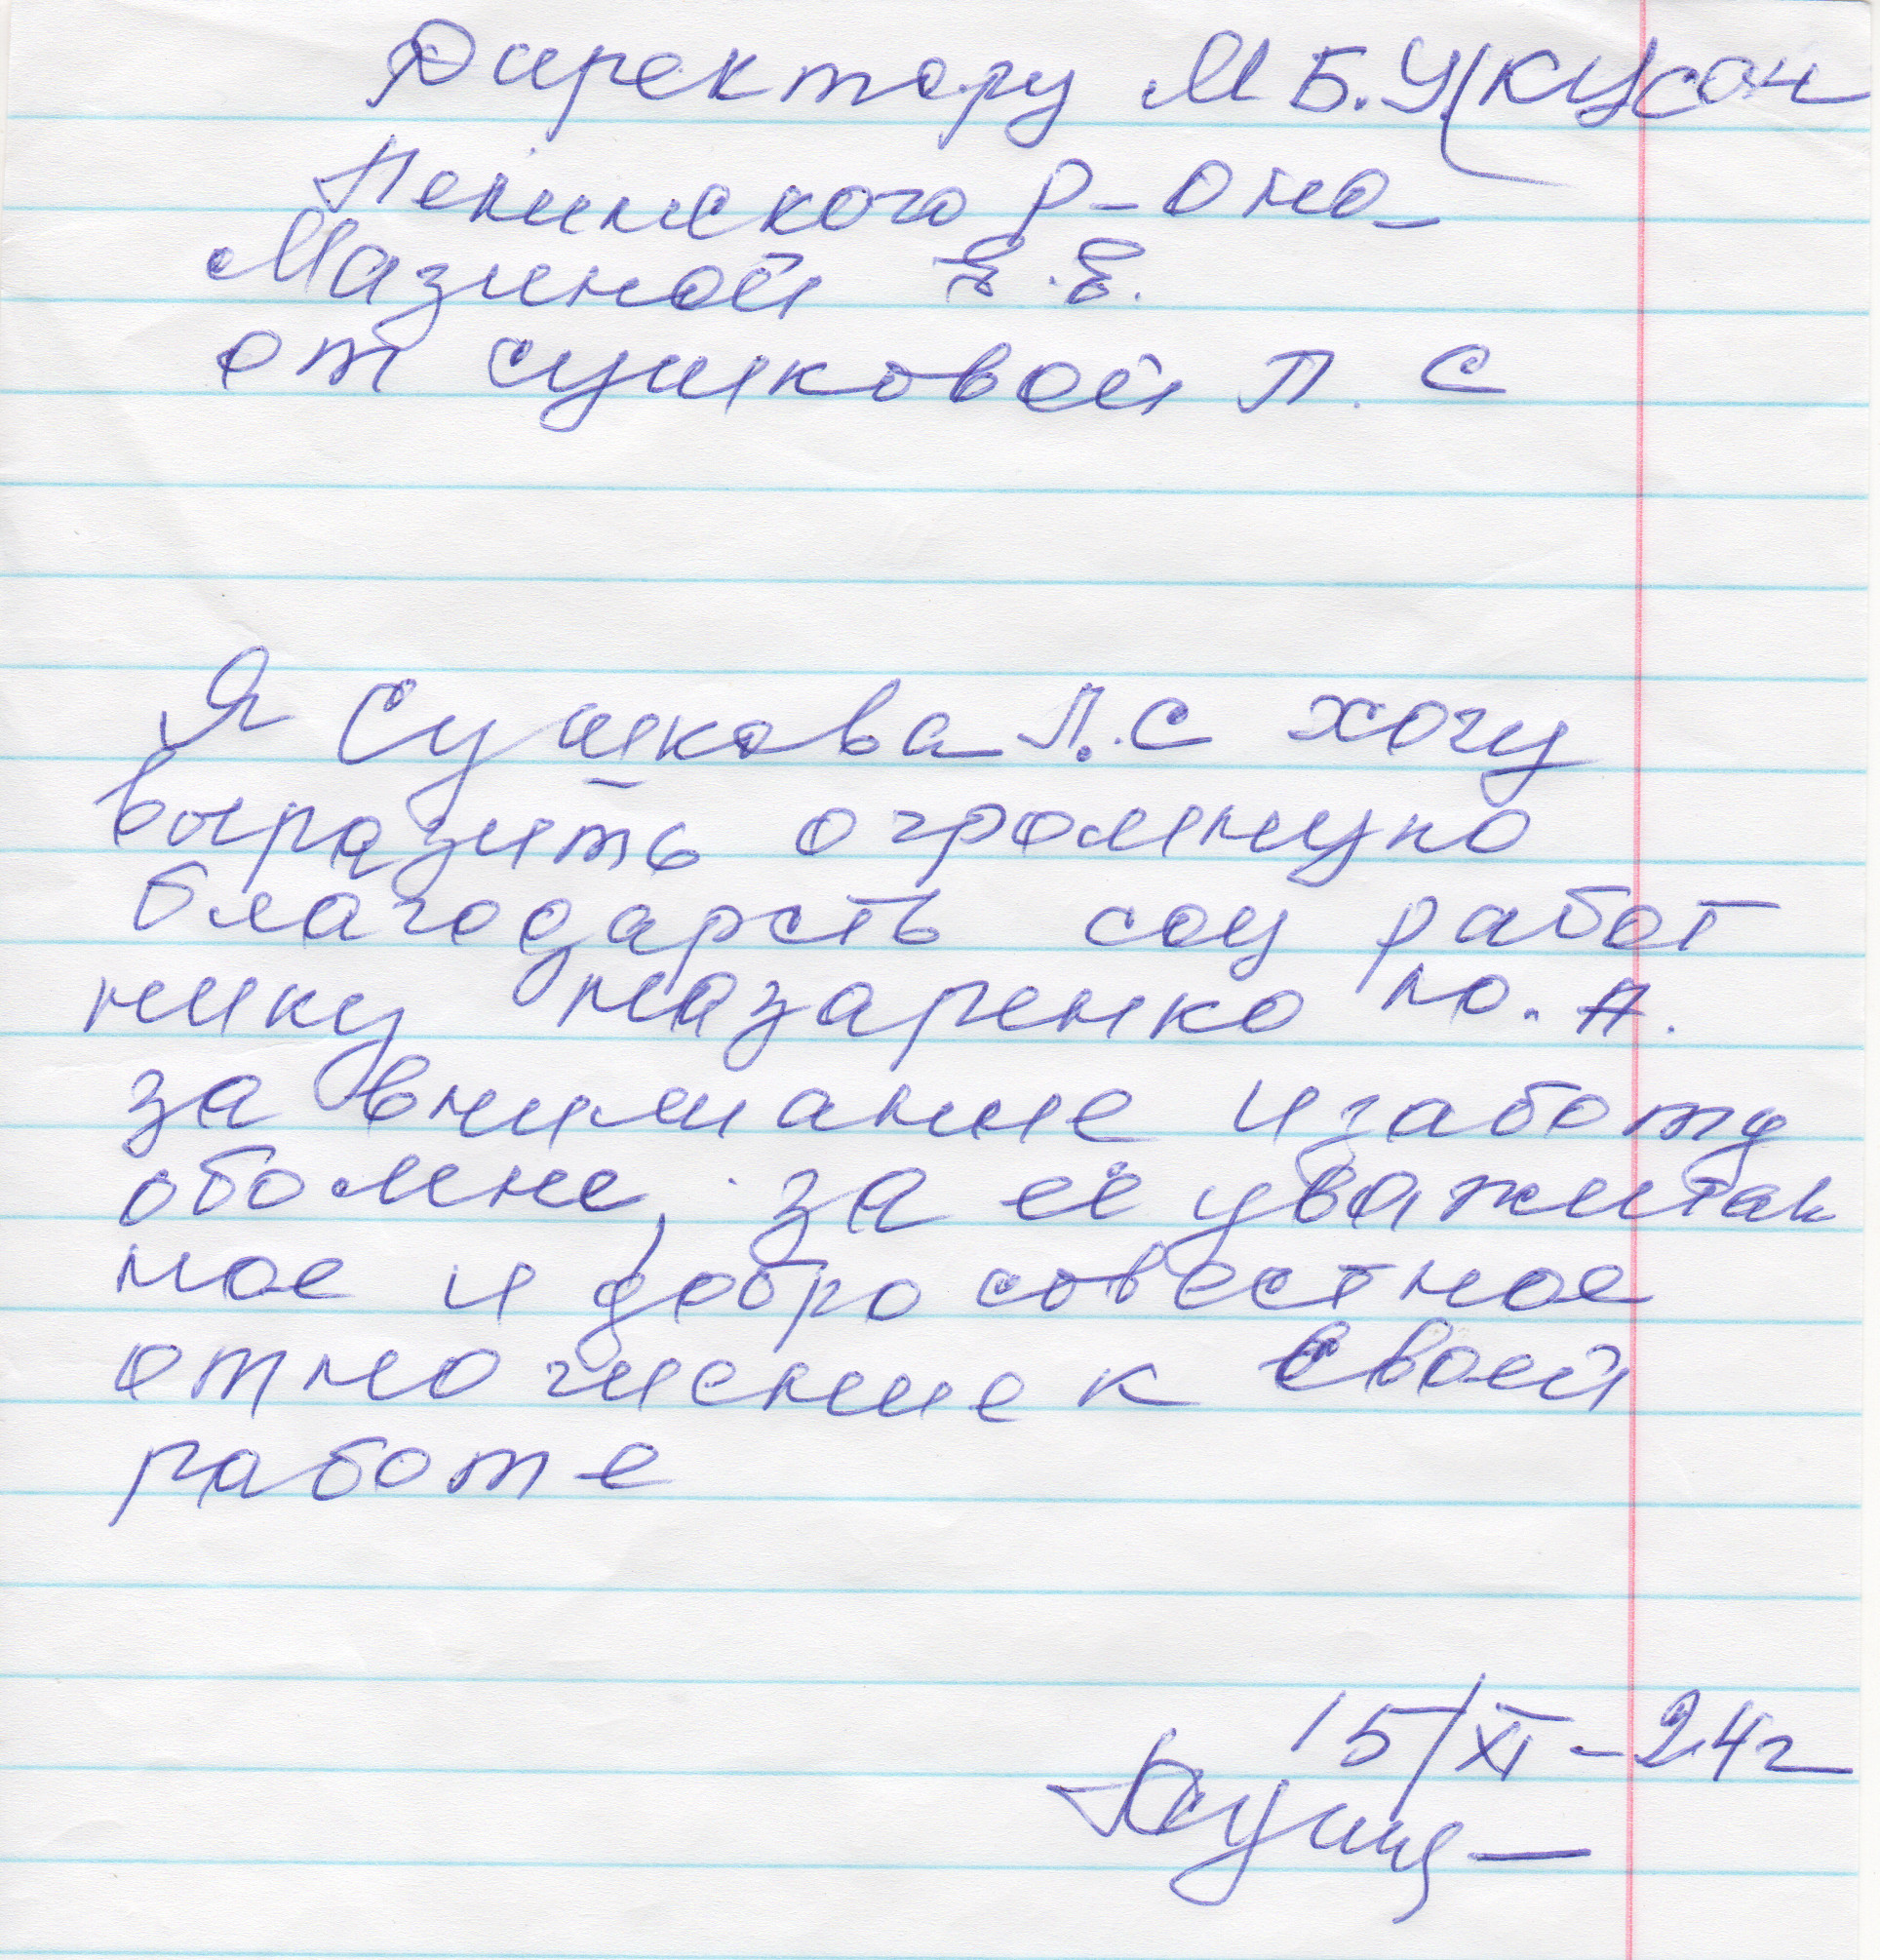 Директору МБУ КЦСОН
Ленинского р-она
Мазиной Е.Е.
от сушковой Л. С
Я Сушкова Л.С хочу
выразить огромную
благодарсть соц работ
нику назаренко Ю. А.
за внимание и заботу
обо мне, за её уважитель
ное и добро совестное
отношение к своей
работе
15/XI-24г